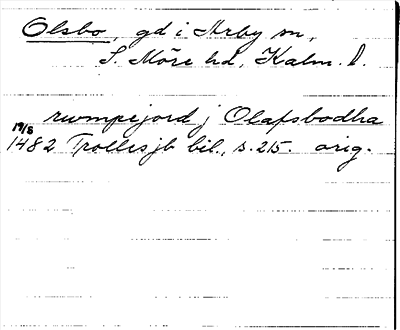 Olsbo, gd i Arby sn,
S. Möre hd, Kalm. l.
rumpejord j Olafsbodha
19/8
1482 Trollesjb bil., s. 215. orig.